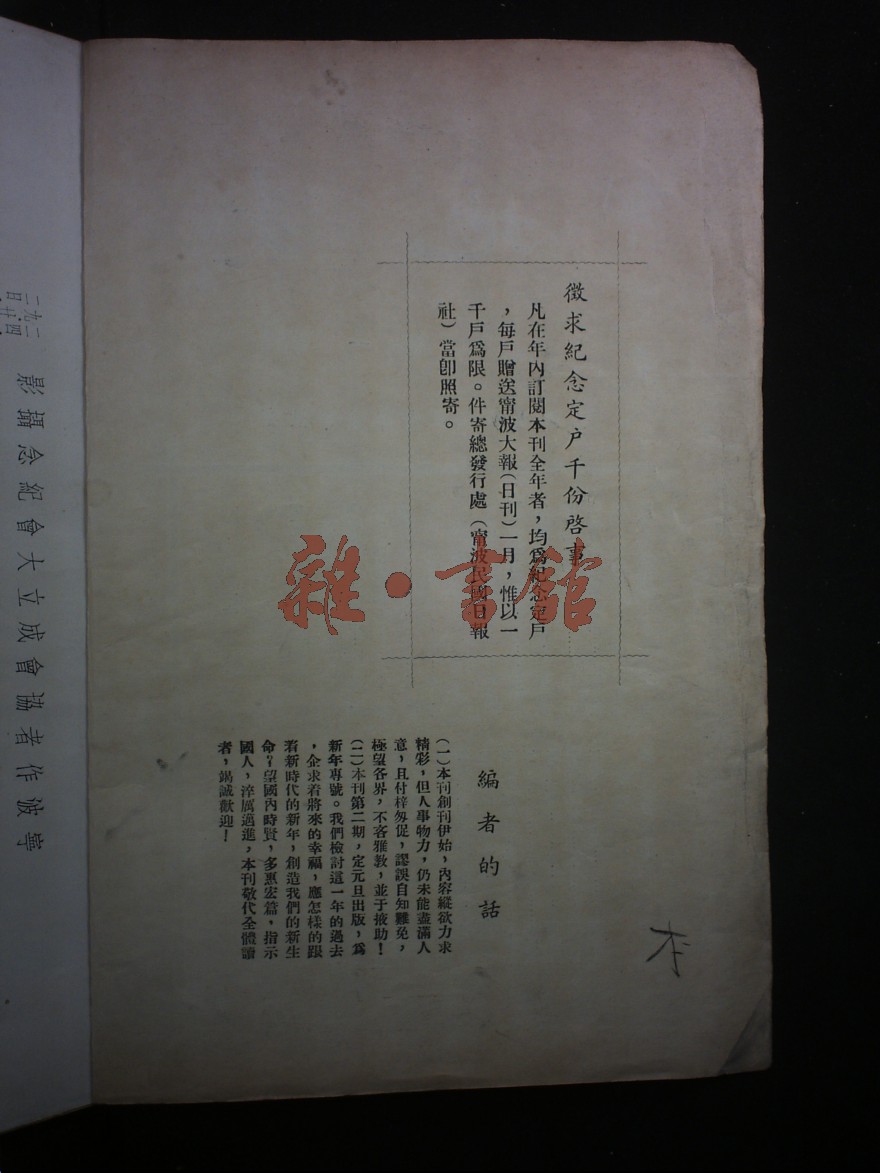 徵求紀念定戶千份啓事
凡在年內訂閱本刊全年者，均爲紀念定戶
，每戶贈送甯波大報（日刊）一月，惟以一
千戶爲限。件寄總發行處（甯波民國日報
社）當卽照寄。
編者的話
（一）本刊創刊伊始，內容縱欲力求
精彩，但人事物力，仍未能盡滿人
意，且付梓匆促，謬誤自知難免，
極望各界，不吝雅敎，並于掖助！
（二）本刊第二期，定元旦出版，爲
新年專號。我們檢討這一年的過去
，企求着將來的幸福，應怎樣的跟
着新時代的新年，創造我們的新生
命？望國內時賢，多惠宏篇，指示
國人，淬厲邁進，本刊敬代全體讀
者，竭誠歡迎！
雜·書館
寧波作者協會成立大會紀念攝影